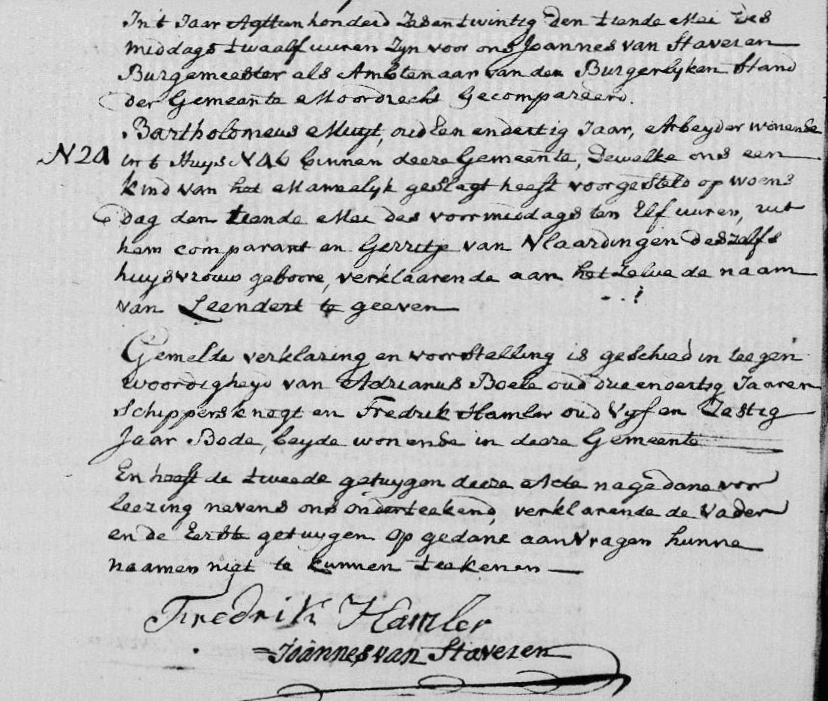 In't Jaar Agttien honderd Zesentwintig den tiende Mei des
middags twaalf uuren Zyn voor ons Joannes van Staveren
Burgemeester als Ambtenaar van den Burgerlyken Stand
der Gemeente Moordrecht Gecompareerd.
Bartholomeus Muyt, oud Een en dertig Jaar, Arbeyder wonende
N 24 in't Huys N 46 binnen deeze Gemeente, Dewelke ons een
kind van het Manneelyk geslagt heeft voorgesteld op woens
dag den tiende Mei des voormiddags ten Elf uuren, uit
hem comparant en Gerritje van Vlaardingen deszelfs
huysvrouw geboore, verklaarende aan hetzelve de naam
van Leendert te geeven
Gemelde verklaring en voorstelling is geschied in teegen
woordigheyd van Adrianus Boele oud drie en dertig Jaaren
Schippersknegt en Fredrik Hamler oud Vyf en Zestig
Jaar Bode, beyde wonende in deeze Gemeente
En heeft de tweede getuygen deeze Acte na gedane voor
leezing nevens ons onderteekend, verklarende de Vader
en de Eerste getuygen op gedane aanvragen hunne
naamen nigt te kunnen teekenen
Fredrik Hamler
Joannes van Staveren